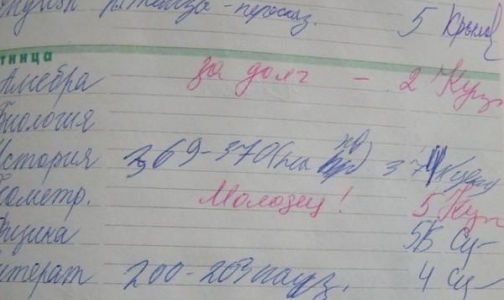 English - пересказ. 5
тница
Алгебра за долг - 2 Кур
Биология
История 369-370 (на 3
Геометр. Молодец! 5 Кур
Физика 5Б Су
Литерат 200-203 наиз. 4 Су